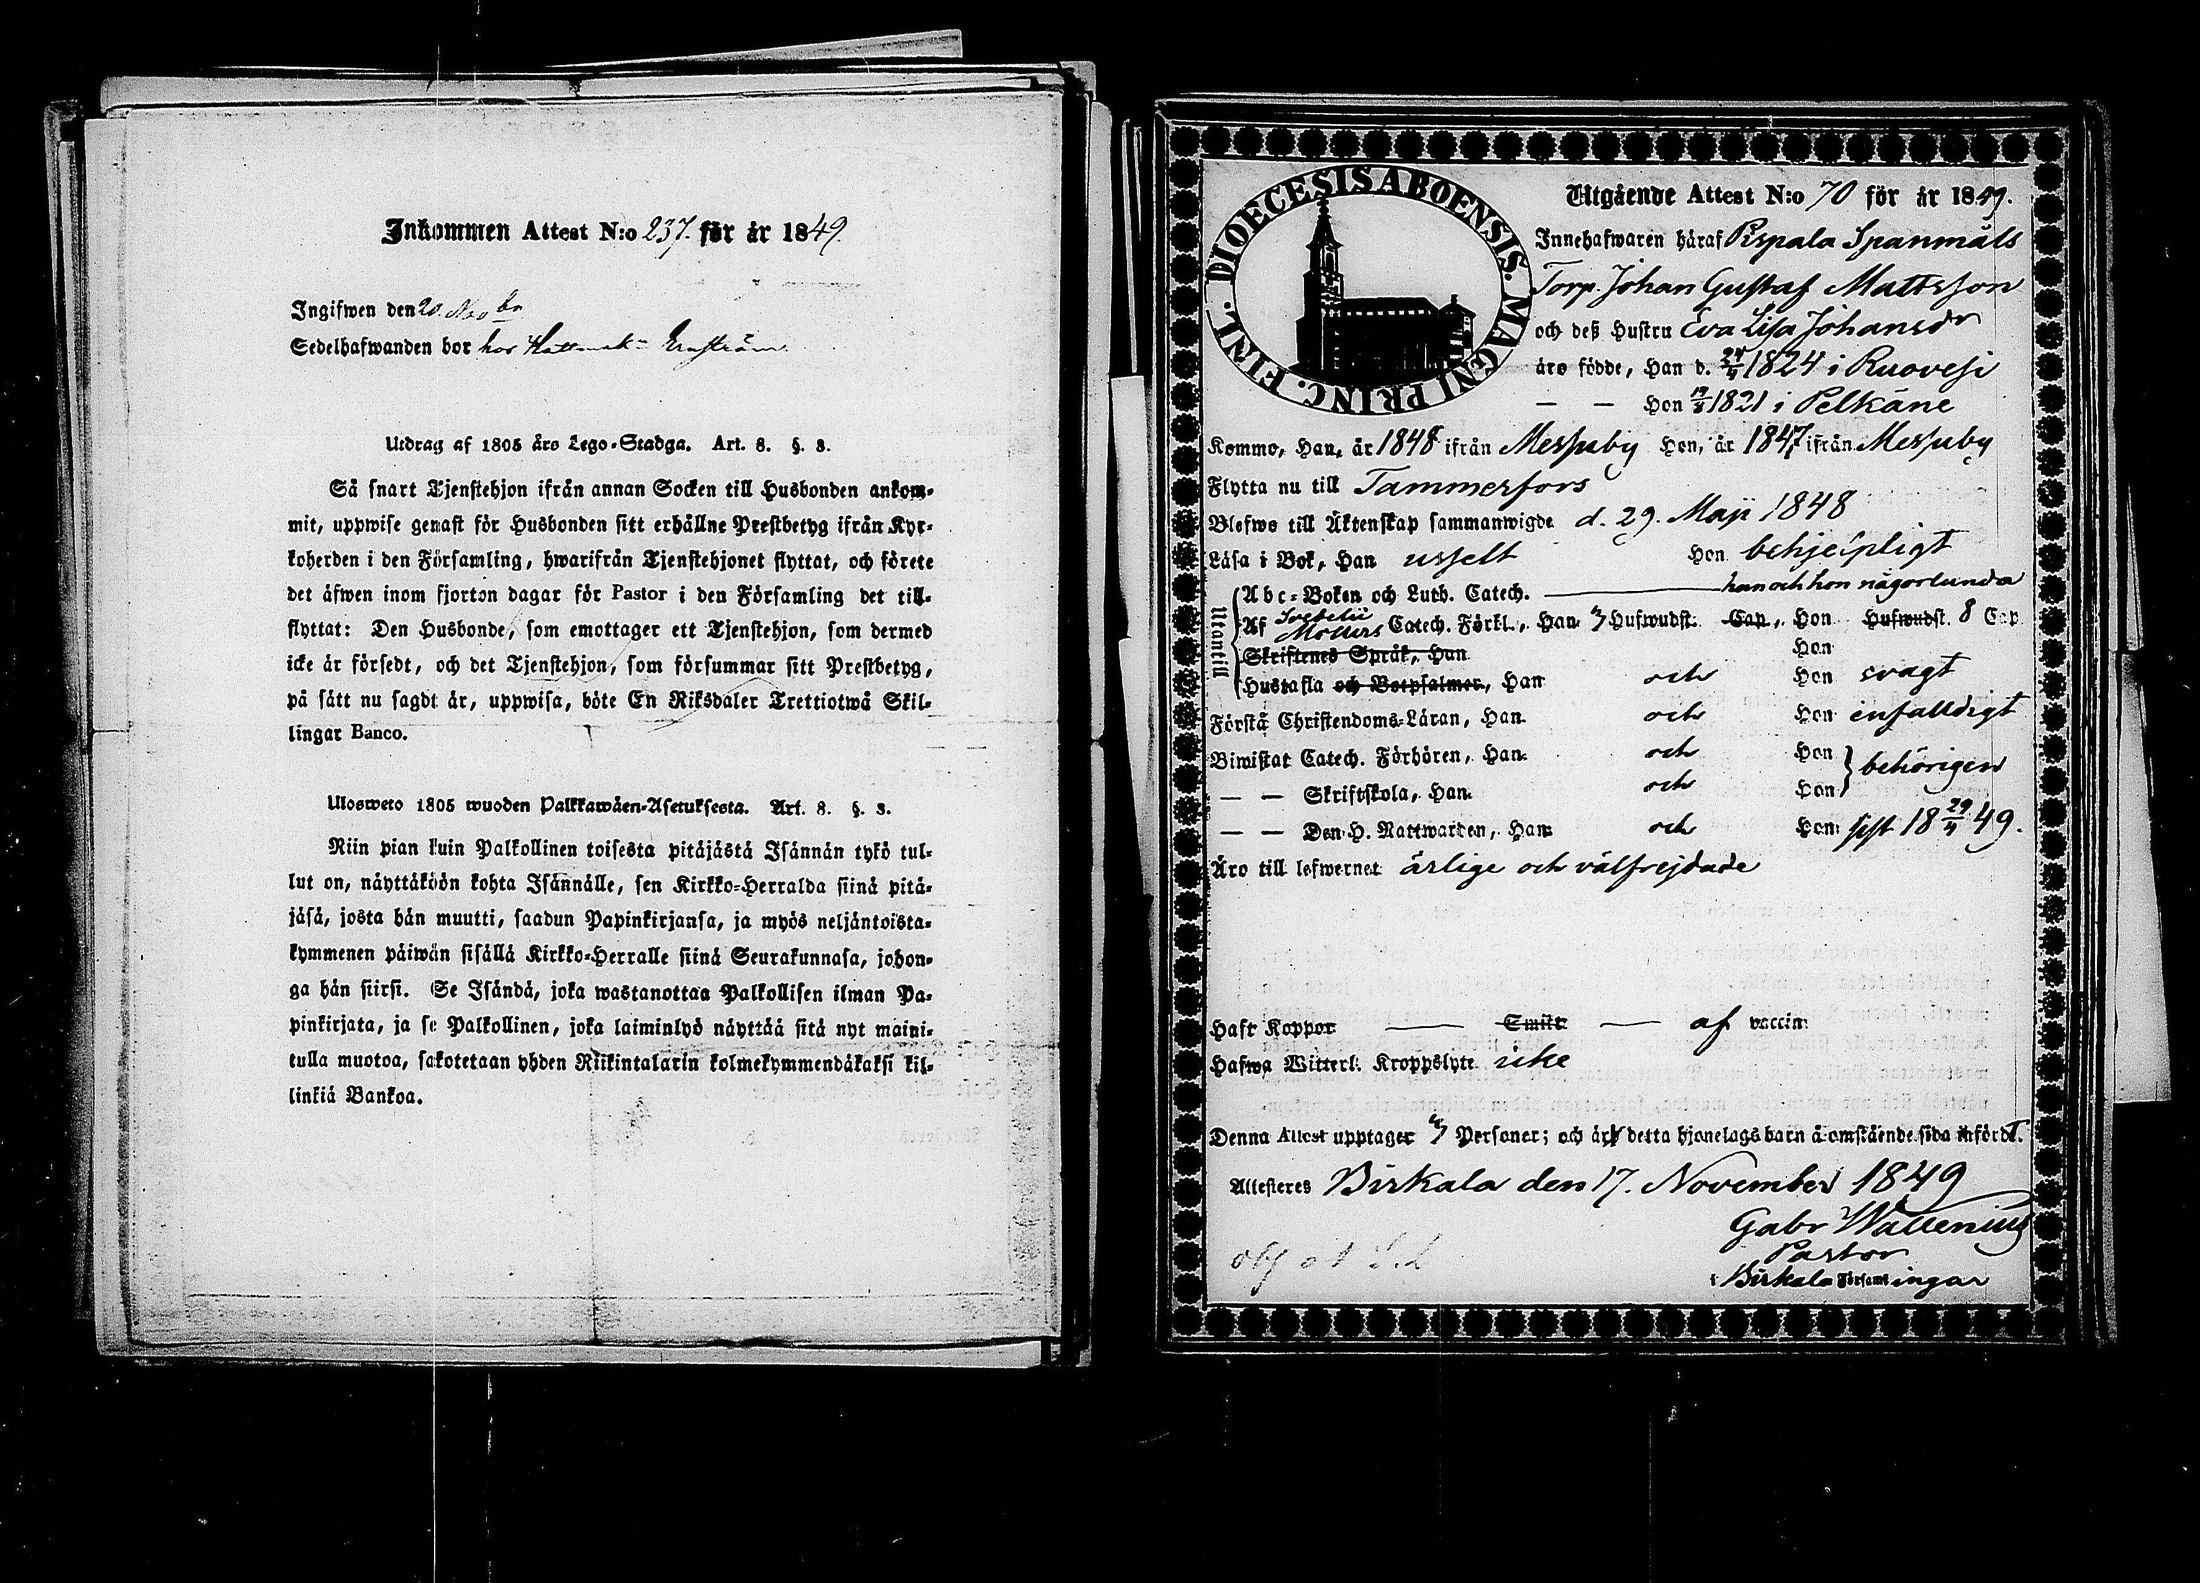 Inkommen Attest N:o 237. för år 1849.
Ingifwen den 20. Novbr
Sedelhafwanden bor hos Enström
Utdrag af 1805 års Lego-Stadga. Art. 8. §. 3.
Så snart Tjenstehjon ifrån annan Socken till Husbonden ankom-
mit, uppwise genast för Husbonden sitt erhållne Prestbetyg ifrån Kyr-
koherden i den Församling, hwarifrån Tjenstehjonet flyttat, och förete
det äfwen inom fjorton dagar för Pastor i den Församling det till-
flyttat: Den Husbonde, som emottager ett Tjenstehjon, som dermed
icke är försedt, och det Tjenstehjon, som försummar sitt Prestbetyg,
på sätt nu sagdt är, uppwisa, böte En Riksdaler Trettiotwå Skil-
lingar Banco.
Ulosweto 1805 wuoden Palkkawäen-Asetuksesta. Art. 8. §. 3.
Niin pian kuin Palkollinen toisesta pitäjästä Isännän tykö tul-
lut on, näyttäköön kohta Isännälle, sen Kirkko-Herralda siinä pitä-
jäsä, josta hän muutti, saadun Papinkirjansa, ja myös neljäntoista-
kymmenen päiwän sisällä Kirkko-Herralle siinä Seurakunnasa, johon-
ga hän siirsi. Se Isändä, joka wastanottaa Palkollisen ilman Pa-
pinkirjata, ja se Palkollinen, joka laiminlyö näyttää sitä nyt maini-
tulla muotoa, sakotetaan yhden Riikintalarin kolmekymmendäkaksi kil-
linkiä Bankoa.
DIOECESIS ABOENSIS. MAGNI PRINC. FINL.
Utgående Attest N:o 70 för år 1849.
Innehafwaren häraf Pispala Spanmåls
Torp. Johan Gustaf Mattsson
och deß Hustru Eva Lisa Johansdr
äro födde, Han d. 24/4 1824 i Ruovesi
— — Hon 19/8 1821 i Pelkäne
Komme, Han, år 1848 ifrån Messuby Hon, år 1847 ifrån Messuby
Flytta nu till Tammerfors
Blefwo till Äktenskap sammanwigde d. 29. Maji 1848
Läsa i Bok, Han usselt Hon behjelpligt
Utantill
Abc-Boken och Luth. Catech. — han och hon någorlunda
Af Svebelii Möllers Catech. Förkl., Han 3 Hufwudst. Cap., Hon Hufwudst. 8 Cap
Skriftenes Språk, Han Hon
Hustafla och Botpsalmer, Han och Hon svagt
Förstå Christendoms-Läran, Han och Hon enfalldigt
Biwistat Catech. Förhören, Han och Hon behörigen
— — Skriftskola, Han och Hon
— — Den H. Nattwarden, Han och Hon sist 18 29/4 49.
Äro till lefwernet ärlige och välfrejdade
Haft Koppor — Smitt — af vaccin
Hafwa Witterl. Kroppslyte icke
Denna Attest upptager 3 Personer; och är detta hjonelags barn å omstående sida infördt.
Attesteres Birkala den 17. November 1849
Gabr Wallenius
Pastor
i Birkala Församlingar